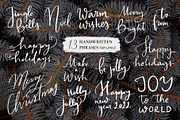 Jingle
Bells
Noel
Warm
wishes
Merry
&
Bright
by
the
fire
happy
holidays
12 HANDWRITTEN
PHRASES
Make a
Wish
be jolly
happy
holidays
Merry
Christmas
Holly,
Jolly
happy
new year 2022
JOY
to the
WORLD